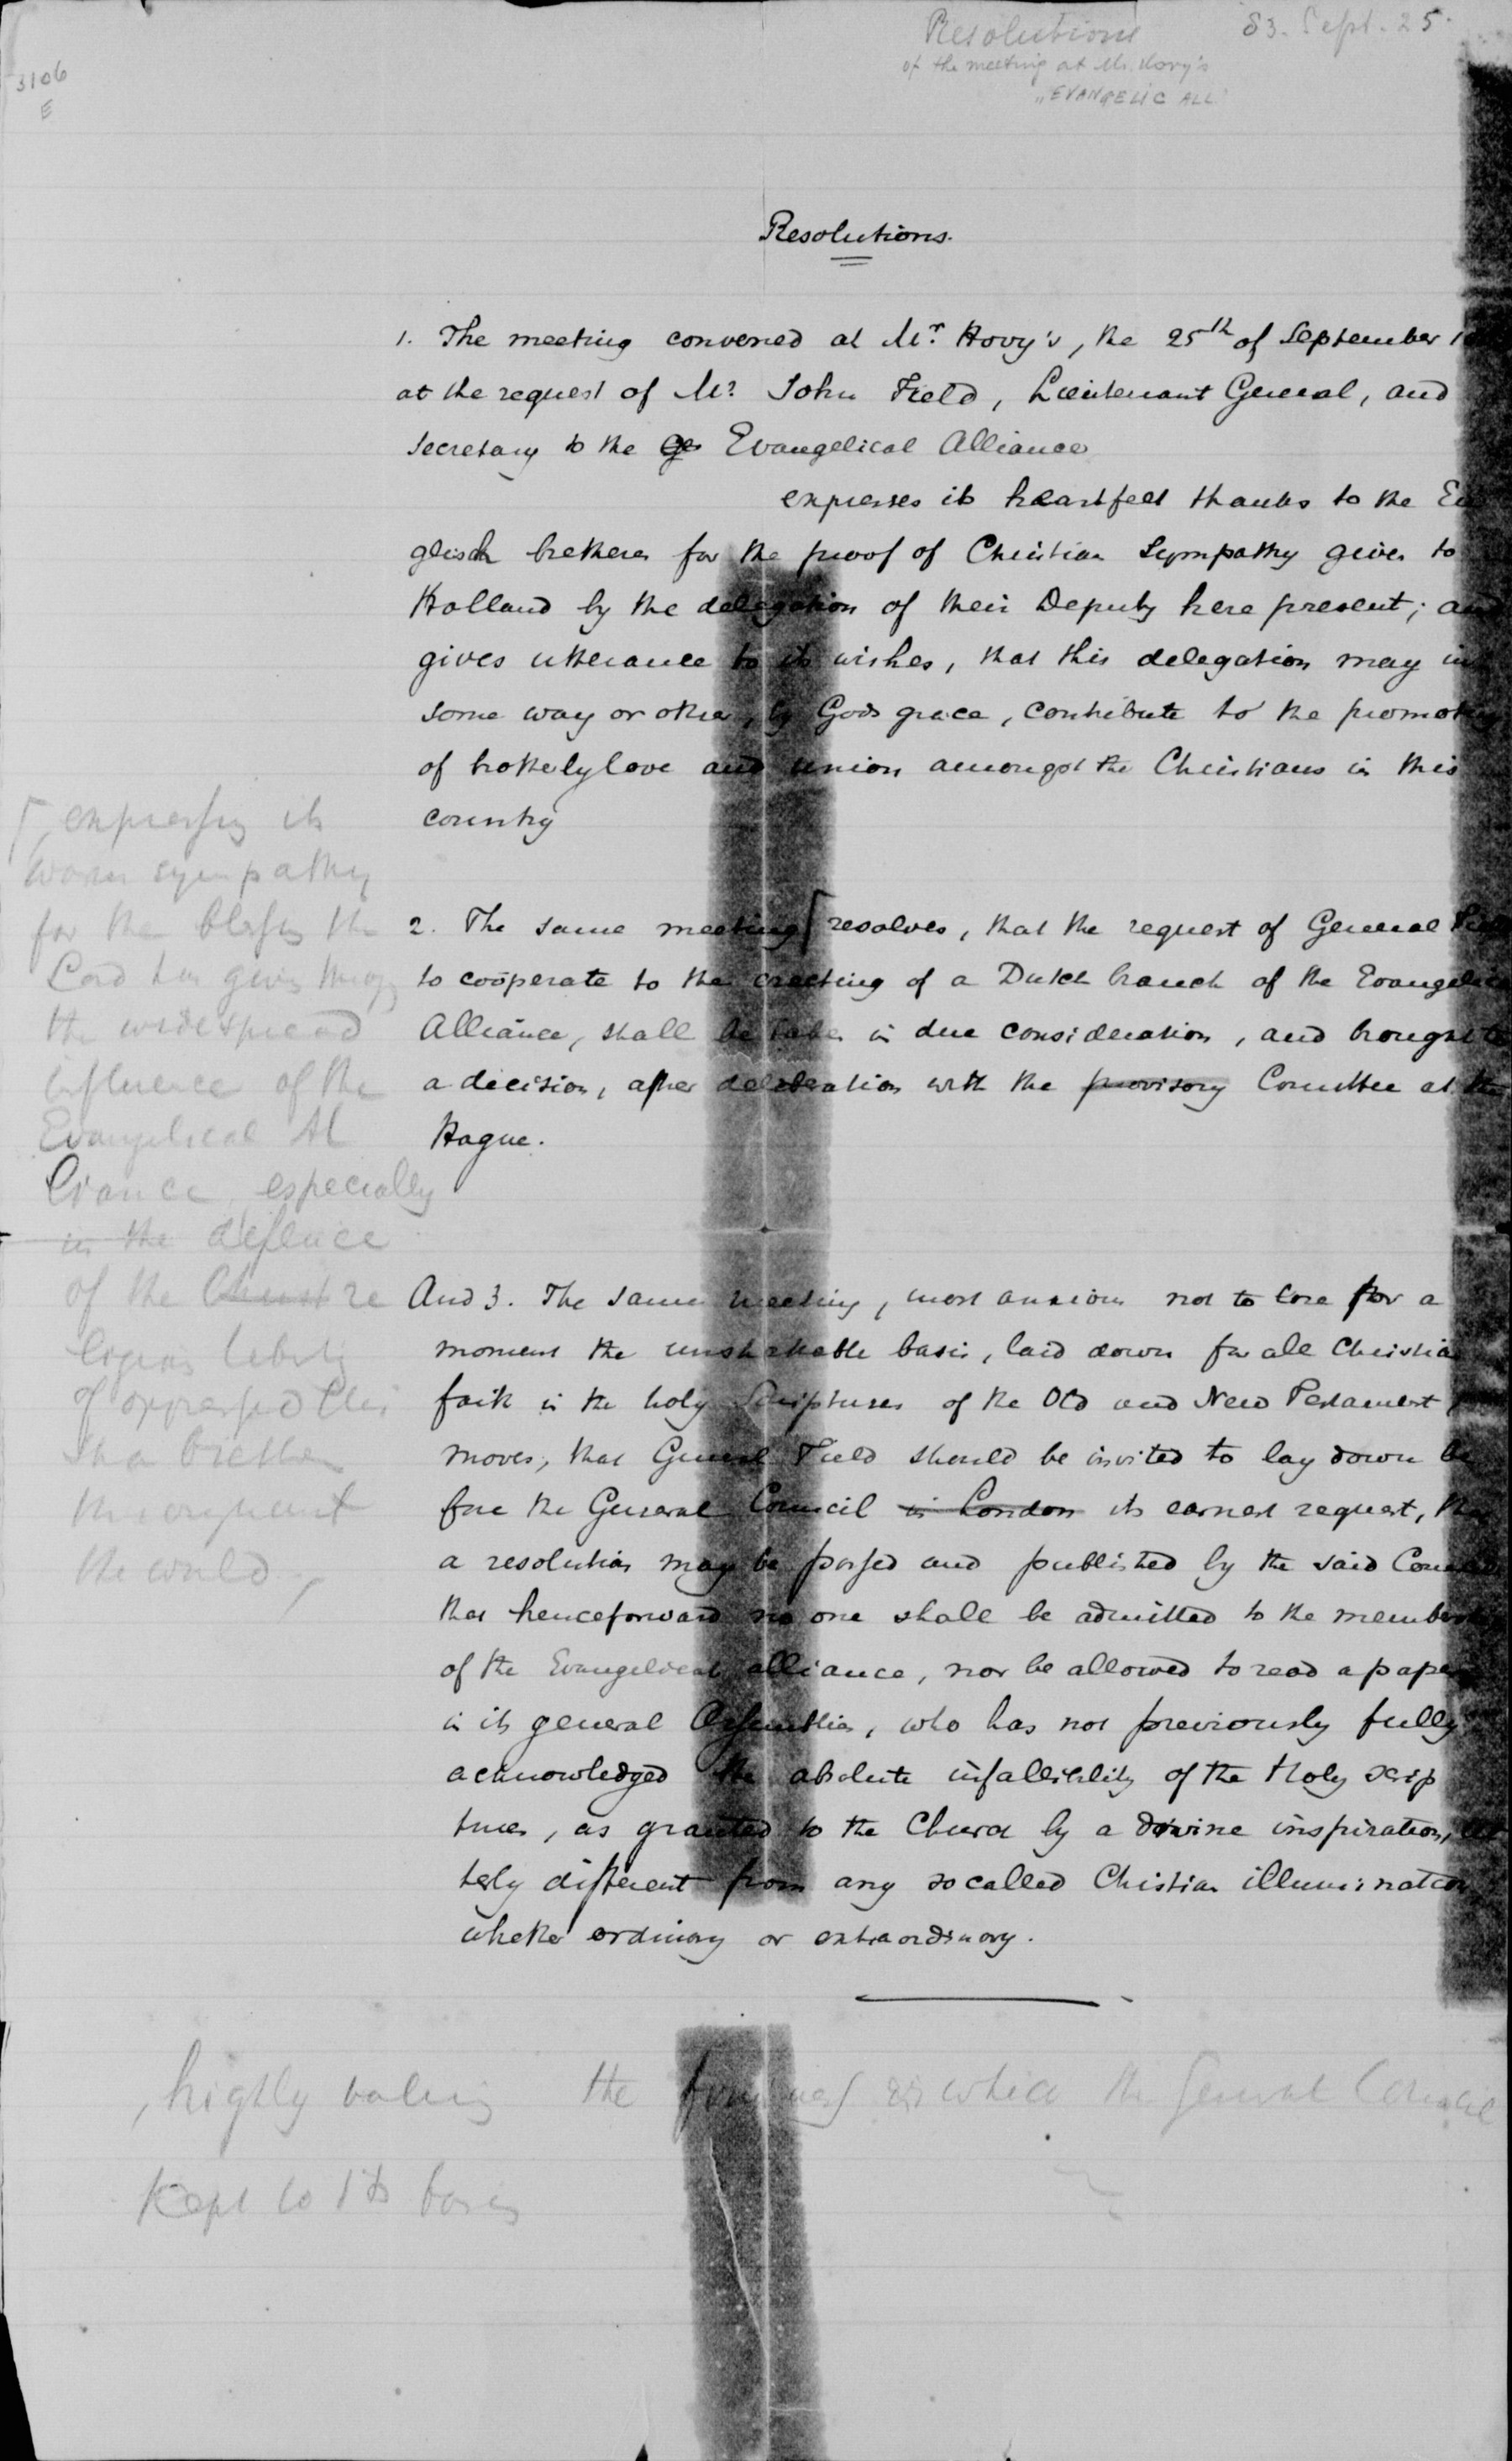 Resolutions 83. Sept. 25.
of the meeting at Mr. Hovy's
"EVANGELIC ALL."
3106
E
Resolutions.
1. The meeting convened at Mr. Hovy's, the 25th of September
at the request of Mr. John Field, Lieutenant General, and
secretary to the Ge Evangelical Alliance
expresses its heartfelt thanks to the En
glisch bretheren for the proof of Christian Sympathy given to
Holland by the delegation of their Deputy here present; and
gives utterance to its wishes, that this delegation may in
some way or other, by Gods grace, contribute to the promoting
of brotherly love and union amongst the Christians in this
country
2. The same meeting resolves, that the request of General Field
to coöperate to the erecting of a Dutch branch of the Evangelical
Alliance, shall be taken in due consideration, and brought to
a decision, after deliberation with the provisory Comittee at the
Hague.
, expressing its
warm sympathy
for the blessing the
Lord has given through
the widespread
influence of the
Evangelical Al
liance, especially
in the defence
of the Christ re
ligious liberty
of oppressed Chri
stian brethren
throughout
the world,
And 3. The same meeting, most anxious not to lose for a
moment the unshakable basis, laid down for all Christian
faith in the holy Scriptures of the Old and New Testament
moves, that General Field should be invited to lay down be
fore the General Council in London its earnest request, that
a resolution may be passed and published by the said Council
that henceforward no one shall be admitted to the membership
of the Evangelical alliance, nor be allowed to read a paper
in its general Assemblies, who has not previously fully
acknowledged the absolute infallibility of the Holy scrip
tures, as granted to the Church by a divine inspiration, ut
terly different from any socalled Christian illumination,
whether ordinary or extraordinary.
, highly valuing the firmness in which the General Council
kept to its basis